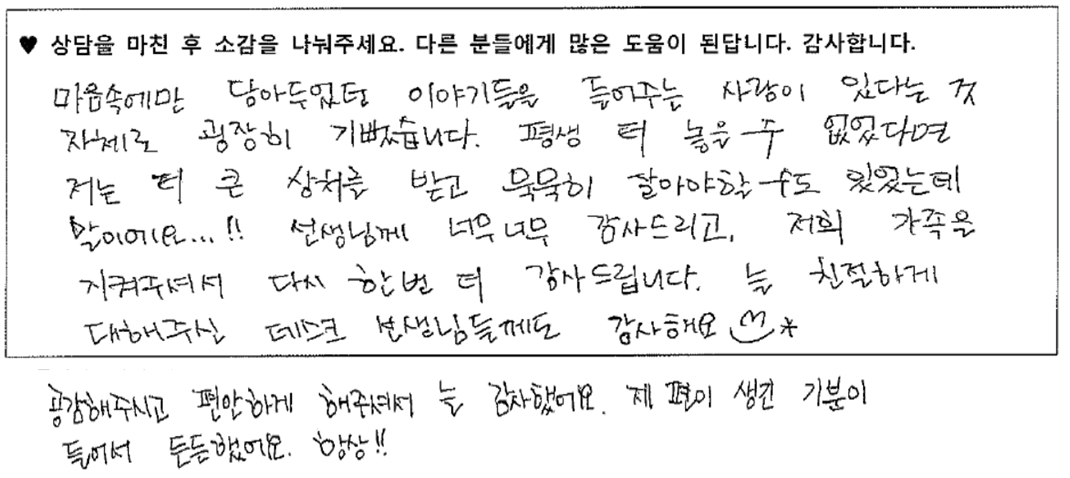 ♥ 상담을 마친 후 소감을 나눠주세요. 다른 분들에게 많은 도움이 된답니다. 감사합니다.
마음속에만 담아두었던 이야기들을 들어주는 사람이 있다는 것
자체로 굉장히 기뻤습니다. 평생 더 놓을 수 없었다면
저는 더 큰 상처를 받고 묵묵히 살아야할 수도 있었는데
말이에요...!! 선생님께 너무너무 감사드리고, 저희 가족을
지켜주셔서 다시 한번 더 감사드립니다. 늘 친절하게
대해주신 데스크 선생님들께도 감사해요 *
공감해주시고 편안하게 해주셔서 늘 감사했어요. 제 편이 생긴 기분이
들어서 든든했어요. 항상!!